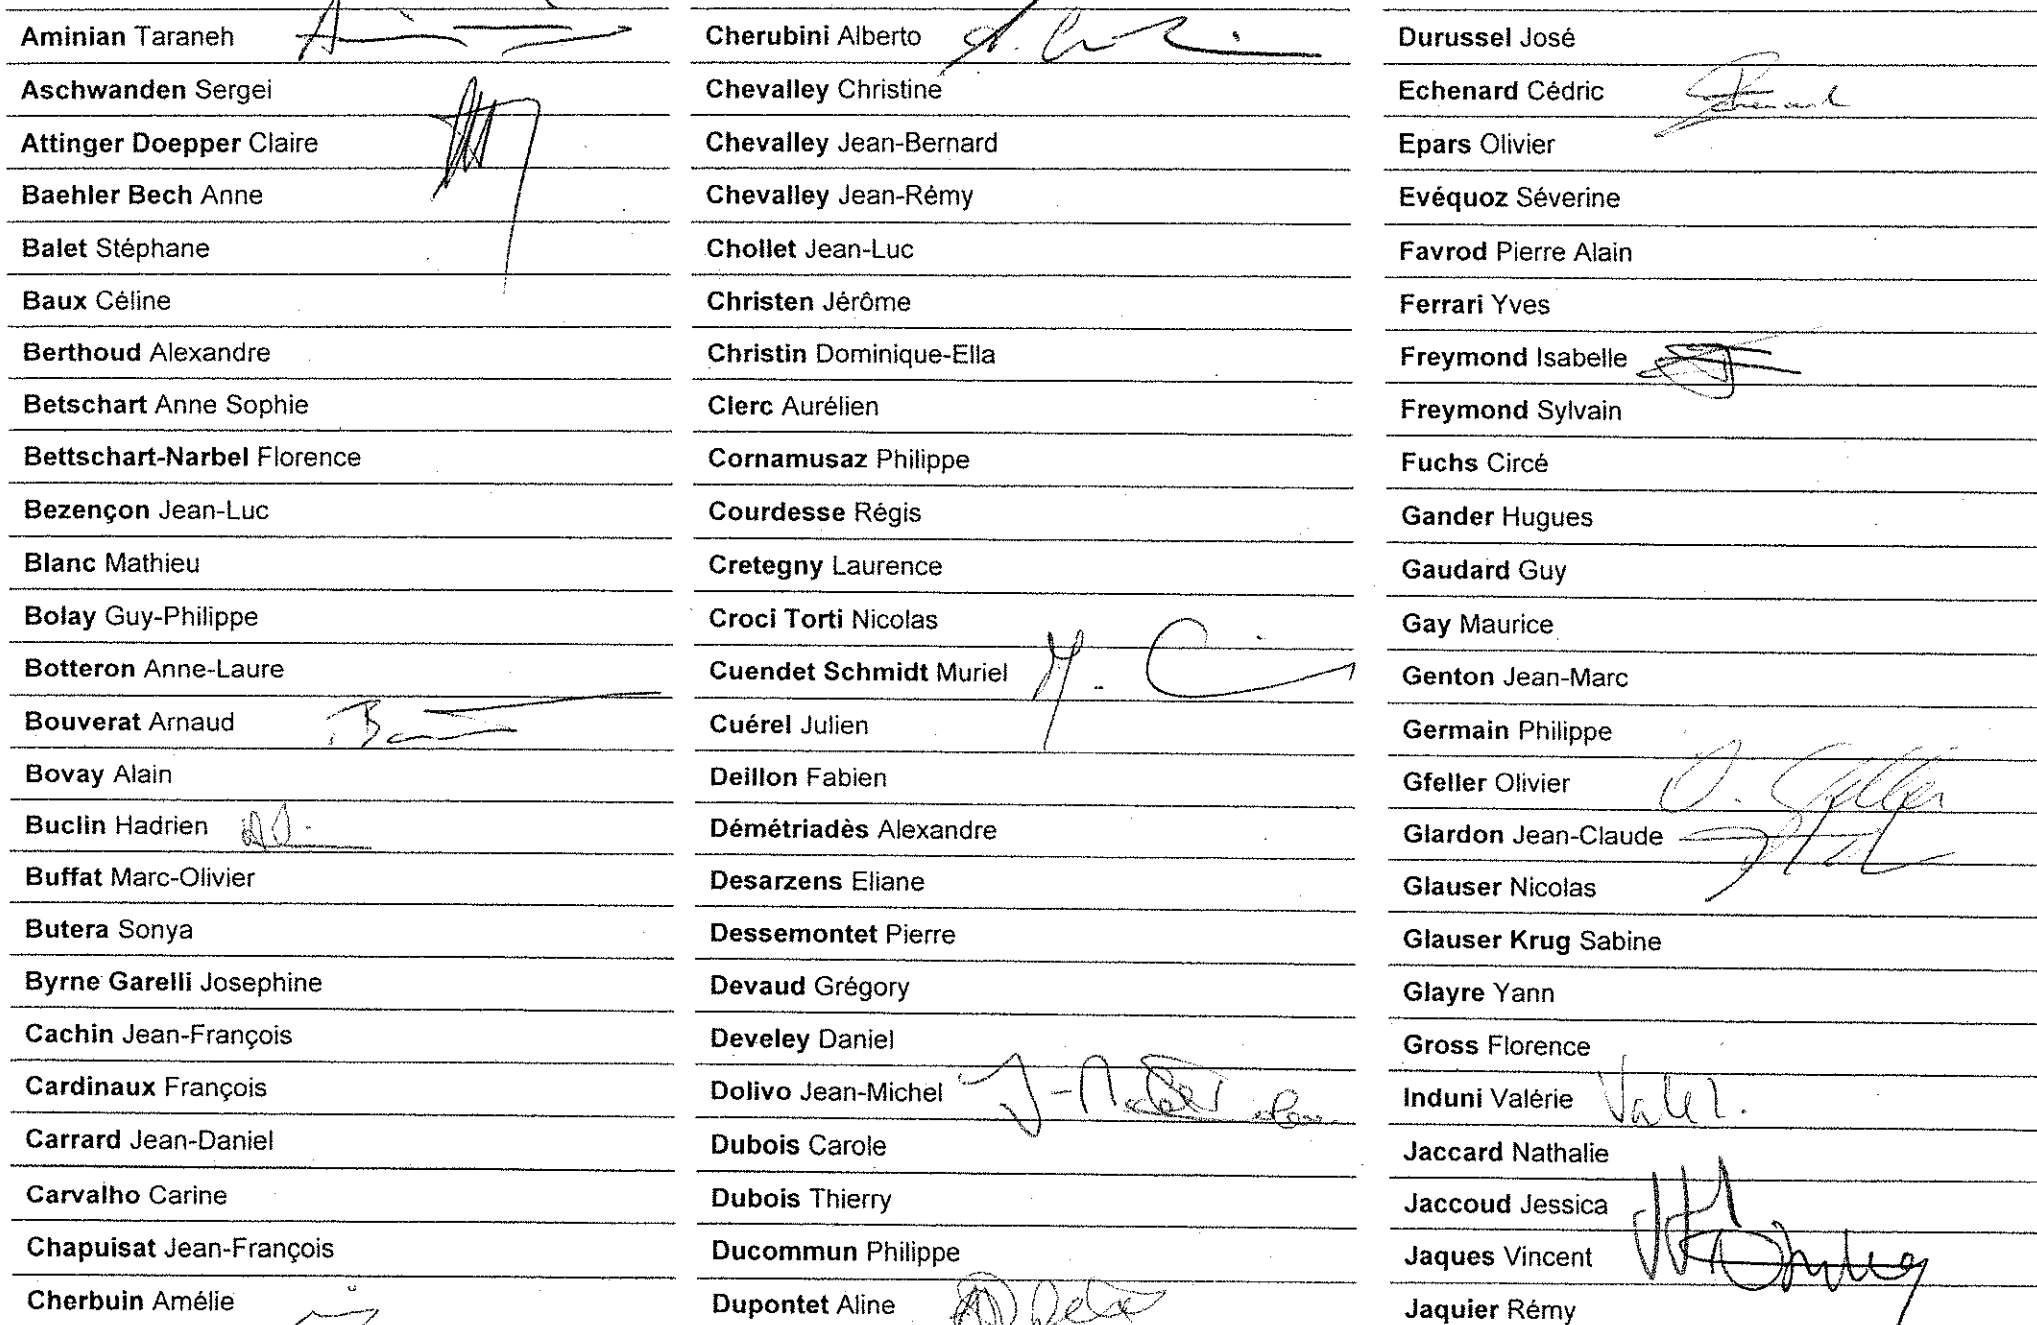 Aminian Taraneh
Aschwanden Sergei
Attinger Doepper Claire
Baehler Bech Anne
Balet Stéphane
Baux Céline
Berthoud Alexandre
Betschart Anne Sophie
Bettschart-Narbel Florence
Bezençon Jean-Luc
Blanc Mathieu
Bolay Guy-Philippe
Botteron Anne-Laure
Bouverat Arnaud
Bovay Alain
Buclin Hadrien
Buffat Marc-Olivier
Butera Sonya
Byrne Garelli Josephine
Cachin Jean-François
Cardinaux François
Carrard Jean-Daniel
Carvalho Carine
Chapuisat Jean-François
Cherbuin Amélie
Cherubini Alberto
Chevalley Christine
Chevalley Jean-Bernard
Chevalley Jean-Rémy
Chollet Jean-Luc
Christen Jérôme
Christin Dominique-Ella
Clerc Aurélien
Cornamusaz Philippe
Courdesse Régis
Cretegny Laurence
Croci Torti Nicolas
Cuendet Schmidt Muriel
Cuérel Julien
Deillon Fabien
Démétriadès Alexandre
Desarzens Eliane
Dessemontet Pierre
Devaud Grégory
Develey Daniel
Dolivo Jean-Michel
Dubois Carole
Dubois Thierry
Ducommun Philippe
Dupontet Aline
Durussel José
Echenard Cédric
Epars Olivier
Evéquoz Séverine
Favrod Pierre Alain
Ferrari Yves
Freymond Isabelle
Freymond Sylvain
Fuchs Circé
Gander Hugues
Gaudard Guy
Gay Maurice
Genton Jean-Marc
Germain Philippe
Gfeller Olivier O. Gfeller
Glardon Jean-Claude
Glauser Nicolas
Glauser Krug Sabine
Glayre Yann
Gross Florence
Induni Valérie
Jaccard Nathalie
Jaccoud Jessica
Jaques Vincent
Jaquier Rémy